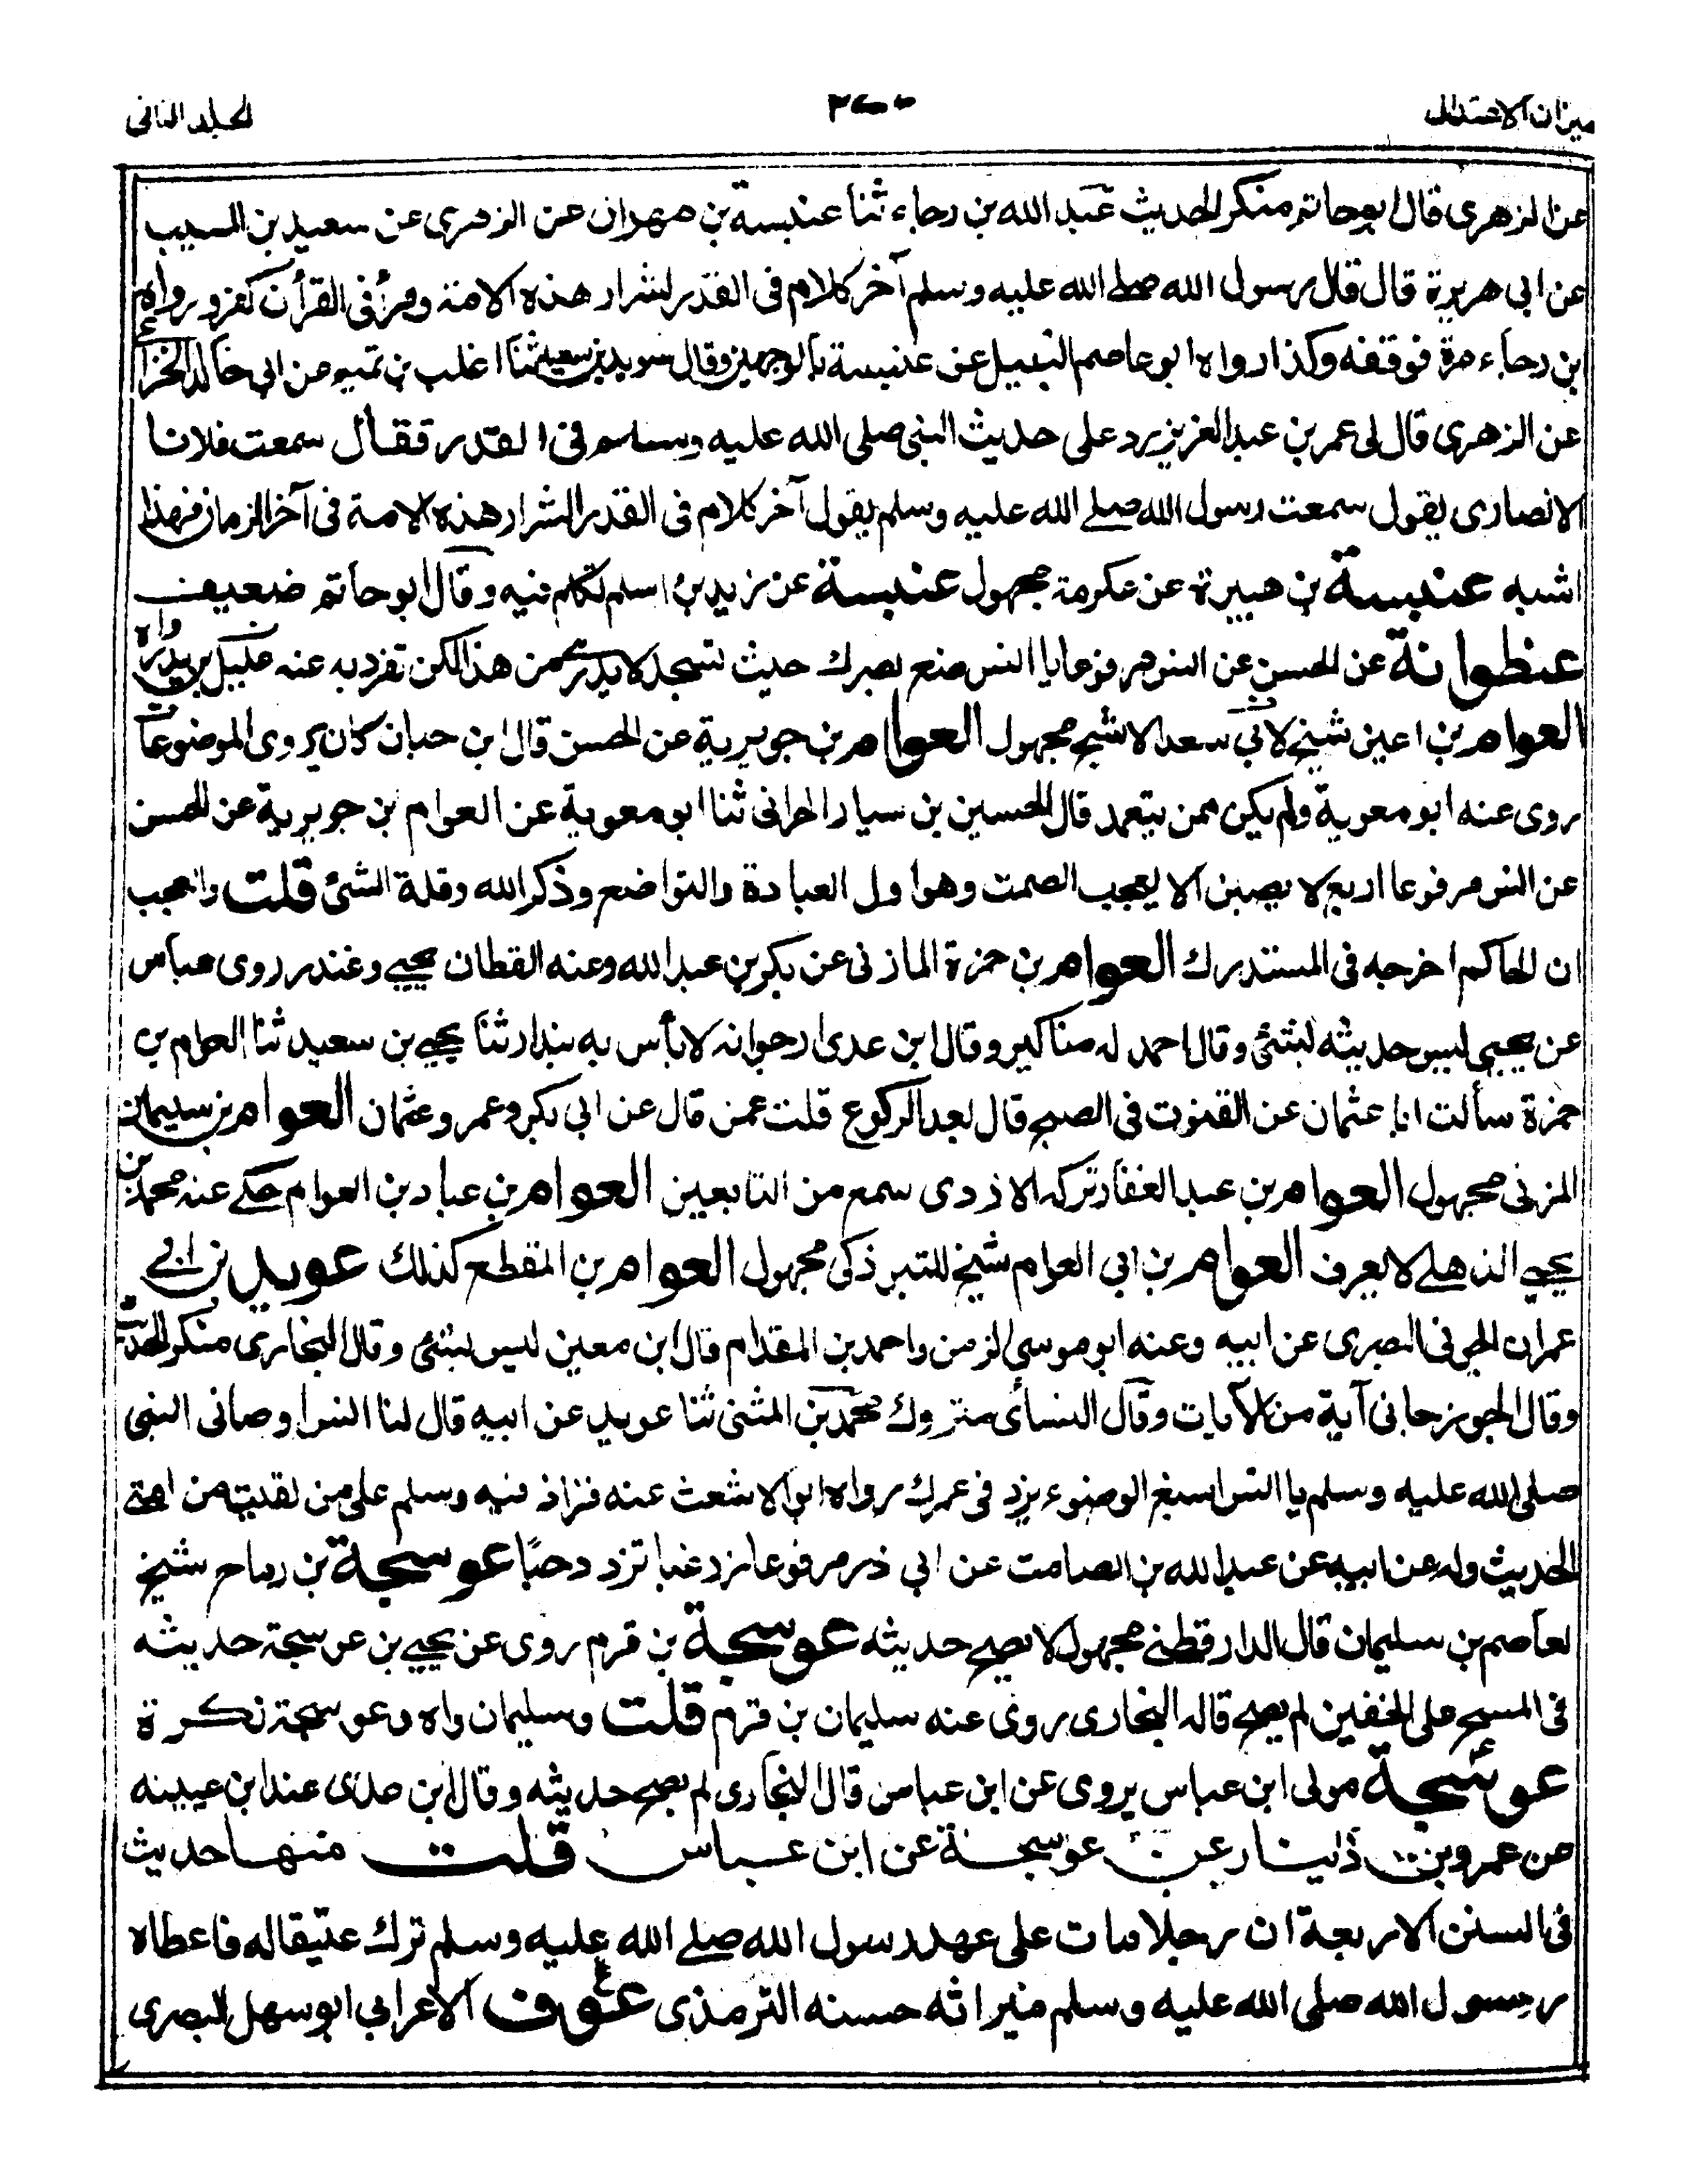 ميزان الاعتدال
٢٧٠
الجلد الثانى
عن الزهرى قال ابوحاتم منكر الحديث عبد الله بن رجاء ثنا عنبسة بن مهران عن الزهرى عن سعيد بن المسيب
عن ابى هريرة قال قال رسول الله صلے الله عليه وسلم آخر كلام فى القدر لشرار هذه الامة ومرأ فى القرأن كفر ورواه
ابن رجاء مرة فوقفه وكذا رواه ابو عاصم النبيل عن عنبسة بالوجهين وقال سويد بن سعيد ثنا اغلب بن تميم عن ابى خالد الخزاعى
عن الزهرى قال لى عمر بن عبد العزيز يرد على حديث النبى صلى الله عليه وسلم فى القدر فقال سمعت فلانا
الانصارى يقول سمعت رسول الله صلے الله عليه وسلم يقول آخر كلام فى القدر لشرار هذه الامة فى آخر الزمان فهذا
اشبه عنبسة بن هبيرة عن عكرمة مجهول عنبسة عن زيد بن اسلم تكلم فيه وقال ابو حاتم ضعيف
عنطوانة عن الحسن عن انس مرفوعا يا انس ضع بصرك حيث تسجد لا يدرى من هذا لكن تفرد به عنه عليلة بن بدر واه
العوام بن اعين شيخ لابى سعد الاشج مجهول العوام بن جويرية عن الحسن قال ابن حبان كان يروى الموضوعات
روى عنه ابو معوية ولم يكن ممن يتعمد قال الحسين بن سيار الحرانى ثنا ابو معوية عن العوام بن جويرية عن الحسن
عن انس مرفوعا اربع لا يصبن الا بعجب الصمت وهو اول العبادة والتواضع وذكر الله وقلة الشئ قلت والعجب
ان الحاكم اخرجه فى المستدرك العوام بن حمزة المازنى عن بكر بن عبد الله وعنه القطان يحيے وغندر روى عباس
عن يحيى ليس حديثه بشئ وقال احمد له مناكير وقال ابن عدى ارجو انه لا بأس به بندار ثنا يحيے بن سعيد ثنا العوام بن
حمزة سألت ابا عثمان عن القنوت فى الصبح قال بعد الركوع قلت عمن قال عن ابى بكر وعمر وعثمان العوام بن سليمان
المزنى مجهول العوام بن عبد الغفار تركه الازدى سمع من التابعين العوام بن عباد بن العوام حكے عنه محمد بن
يحيے الذهلے لا يعرف العوام بن ابى العوام شيخ للتبوذكى مجهول العوام بن المقطع كذلك عويد بن ابى
عمران الجونى البصرى عن ابيه وعنه ابو موسى الزمن واحمد بن المقدام قال ابن معين ليس بشئ وقال البخارى منكر الحديث
وقال الجوزجانى آية من الآيات وقال النسائى متروك محمد بن المثنى ثنا عويد عن ابيه قال لنا انس اوصانى النبى
صلى الله عليه وسلم يا انس اسبغ الوضوء يزد فى عمرك رواه ابو الاشعث عنه فزاد فيه وسلم على من لقيت من امتى
الحديث وله عن ابيه عن عبد الله بن الصامت عن ابى ذر مرفوعا زر غبا تزدد حبًا عوسجة بن رماح شيخ
لعاصم بن سليمان قال الدارقطنے مجهول لا يصح حديثه عوسجة بن قرم روى عن يحيے بن عوسجة حديثه
فى المسح على الخفين لم يصح قاله البخارى روى عنه سليمان بن قرم قلت وسليمان واه وعوسجة نكرة
عوسجة مولى ابن عباس يروى عن ابن عباس قال البخارى لم يصح حديثه وقال ابن عدى عند ابن عيينه
عن عمرو بن دينار عن عوسجة عن ابن عباس قلت منها حديث
فى السنن الاربعة ان رجلا مات على عهد رسول الله صلے الله عليه وسلم ترك عتيقا له فاعطاه
رسول الله صلى الله عليه وسلم ميراثه حسنه الترمذى عوف الاعرابى ابو سهل البصرى